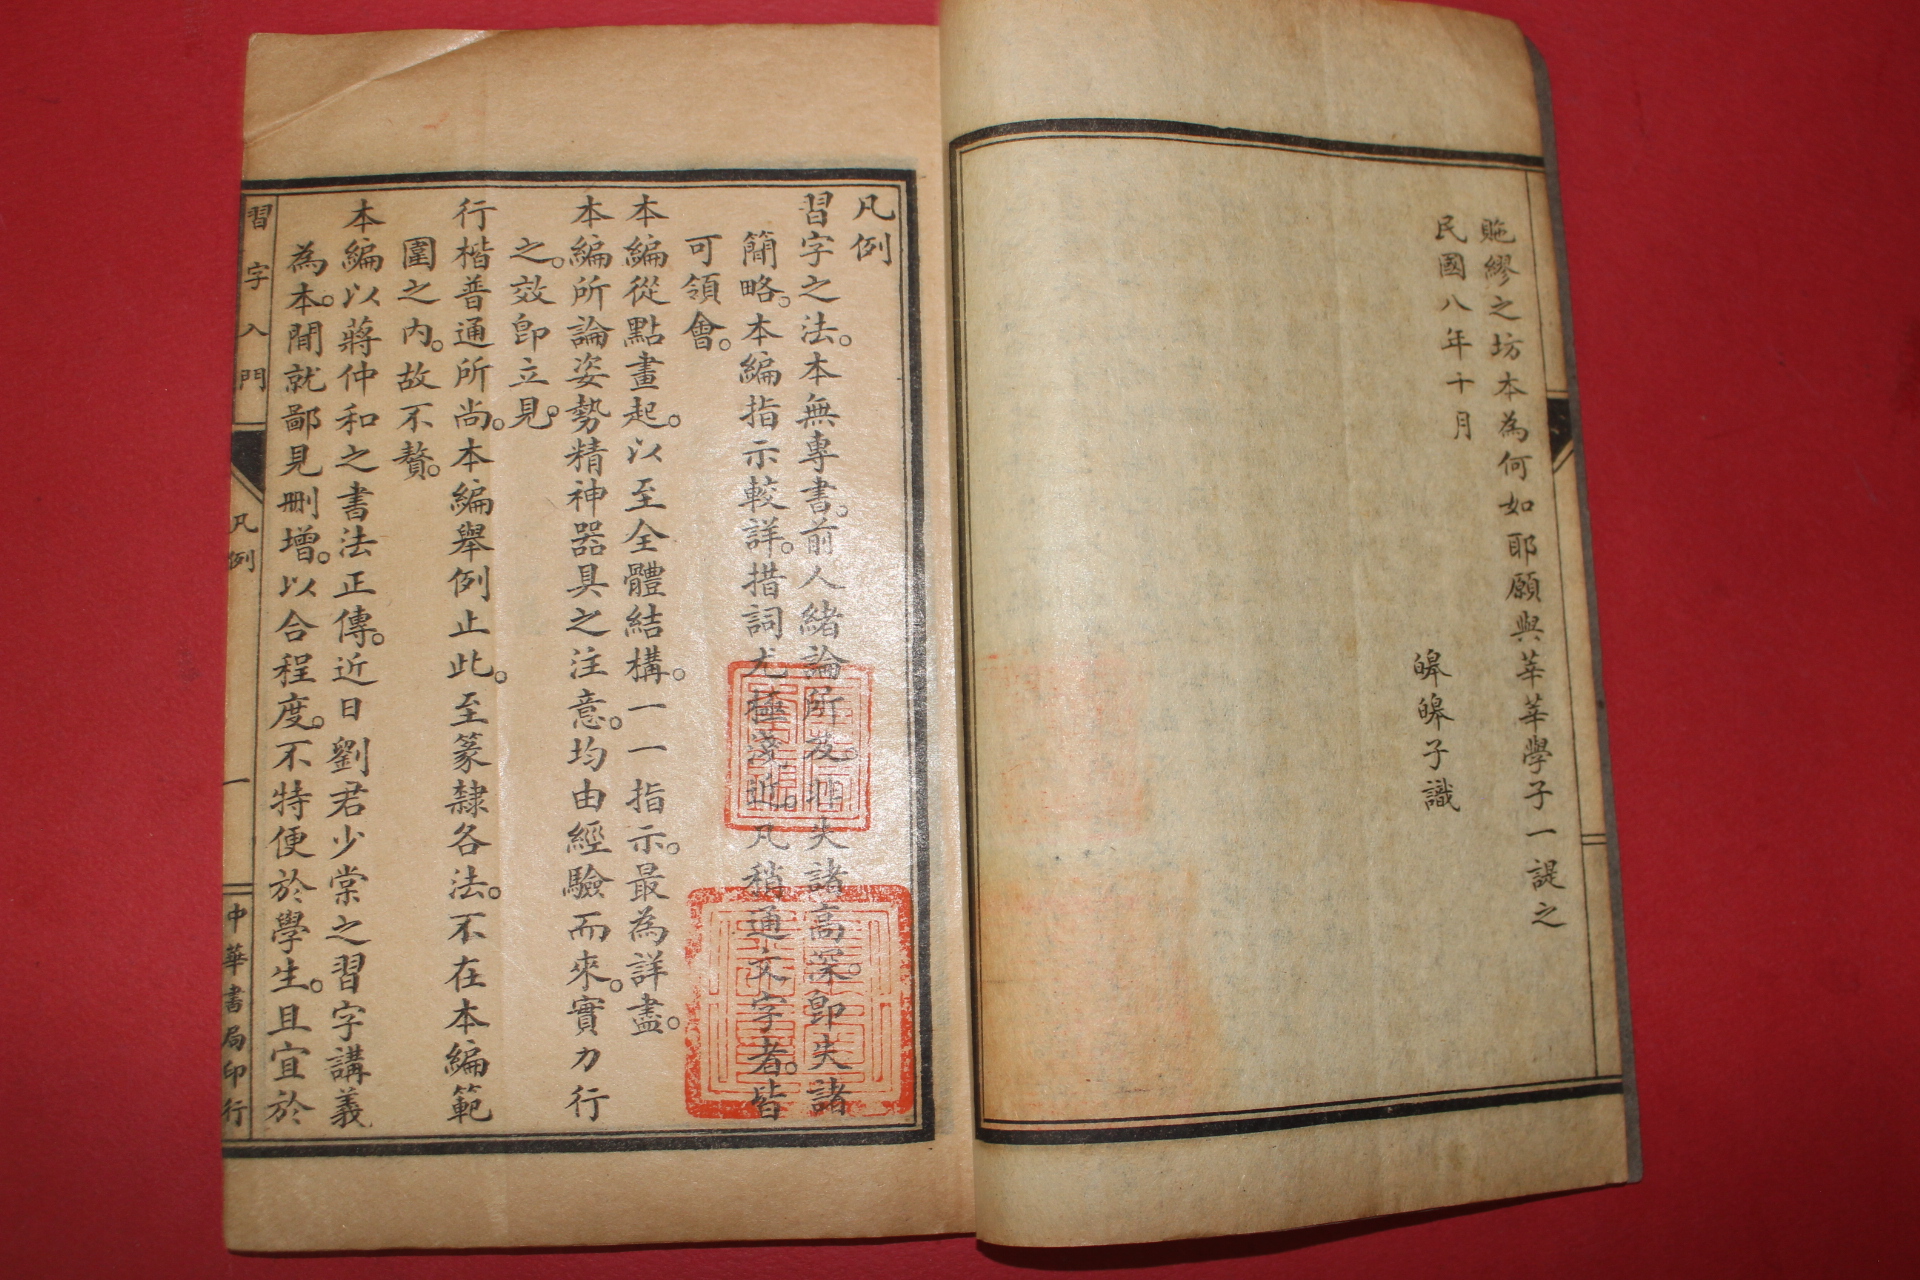 貤繆之坊本為何如耶願與莘莘學子一諟之
民國八年十月
皞皞子識
凡例
習字之法。本無專書。前人緒論所及。非失諸高深。卽失諸
簡略。本編指示較詳。措詞尤極淺近。凡稍通文字者。皆
可領會。
本編從點畫起。以至全體結構。一一指示。最為詳盡。
本編所論姿勢精神器具之注意。均由經驗而來。實力行
之。效卽立見。
行楷普通所尚。本編舉例止此。至篆隸各法。不在本編範
圍之內。故不贅。
本編以蔣仲和之書法正傳。近日劉君少棠之習字講義
為本。間就鄙見刪增。以合程度。不特便於學生。且宜於
習字入門 凡例 一 中華書局印行